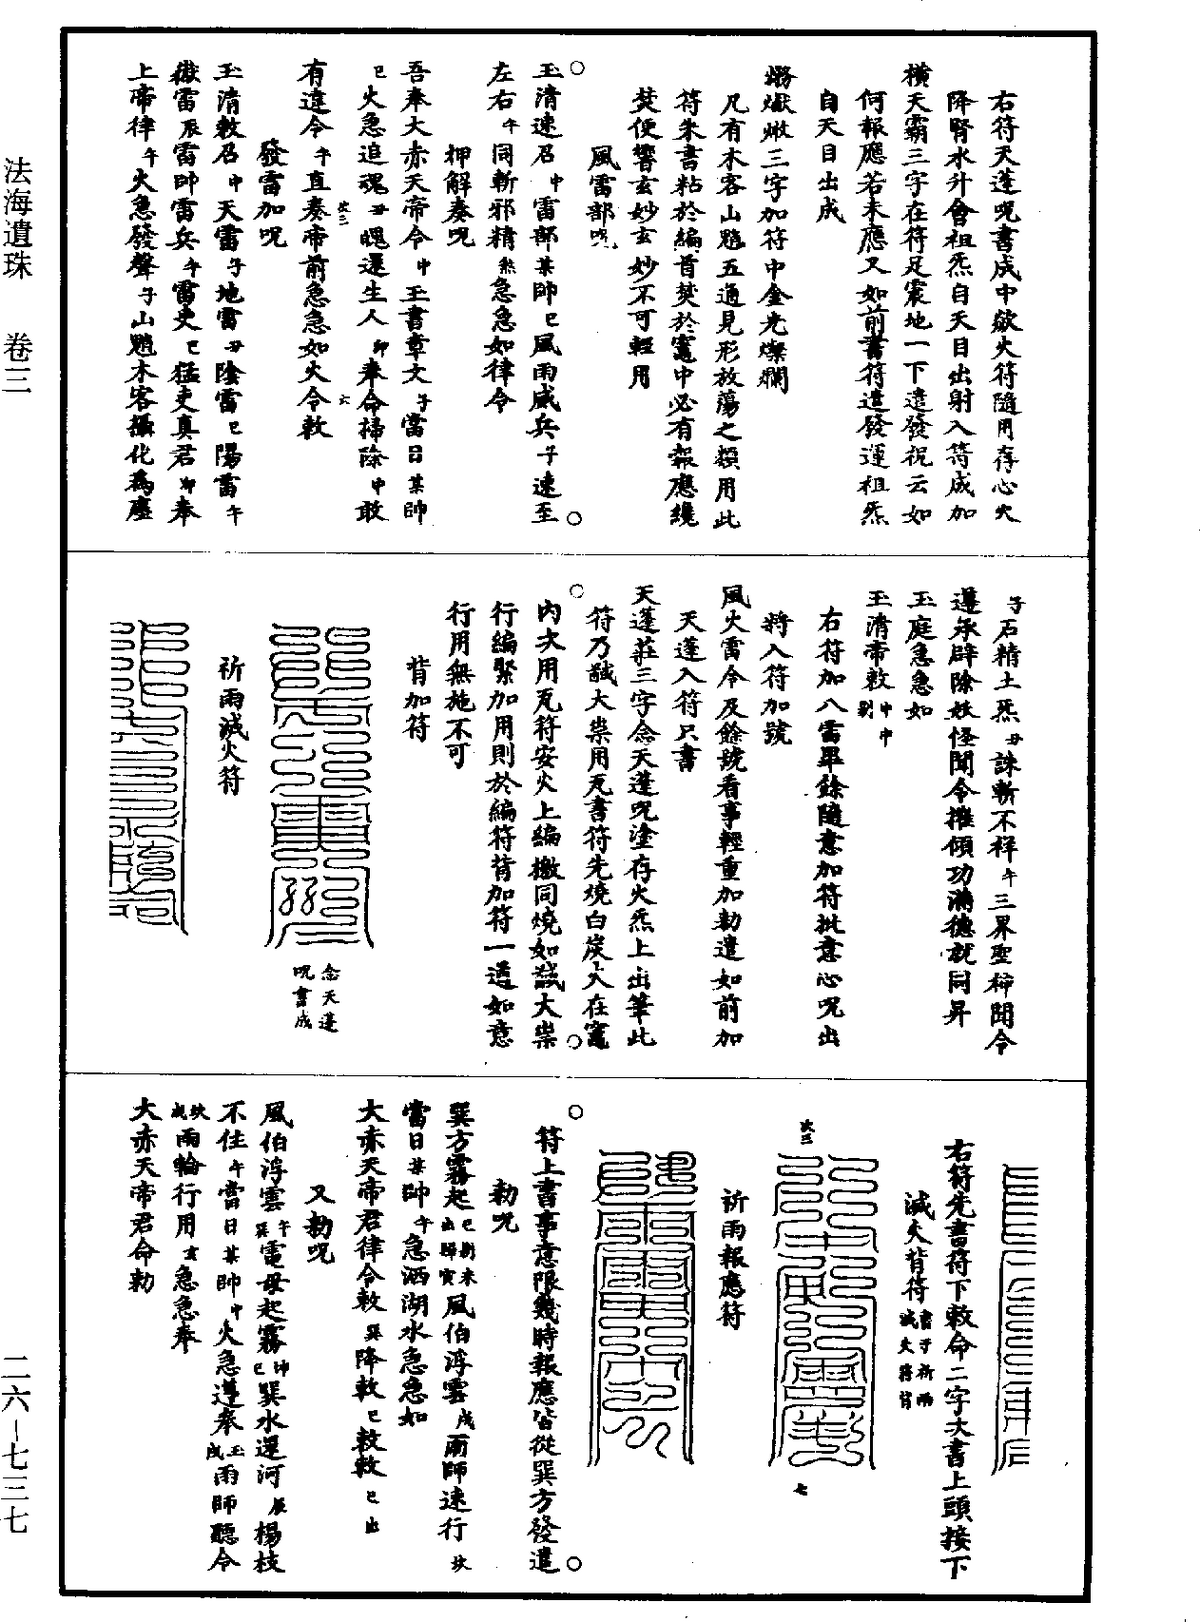 右符天蓬呪書成中欻火符隨用存心火
降腎水升會祖炁自天目出射入符成加
橫天霸三字在符足震地一下遣發祝云如
何報應若未應又如前書符遣發運祖炁
自天目出成
三字加符中金光燦爛
凡有木客山魈五通見形放蕩之類用此
符朱書粘於編首焚於竈中必有報應纔
焚便響玄妙玄妙不可輕用
風雷部呪
玉清速召申雷部某帥巳風雨威兵子速至
左右午同斬邪精急急如律令
押解奏呪
吾奉大赤天帝令申玉書章文子當日某帥
巳火急追魂丑魄還生人卯奉命掃除申敢
有違令午直奏帝前急急如火令敕
發雷加呪
玉清敕召申天雷子地雷丑陰雷巳陽雷午
嶽雷辰雷帥雷兵午雷吏巳猛吏真君卯奉
上帝律午火急發聲子山魈木客攝化為塵
子石精土炁丑誅斬不祥午三界聖師聞令
遵承辟除妖怪聞令摧傾功滿德就同昇
玉庭急急如
玉清帝敕申申剔
右符加八雷畢餘隨意加符批意心呪出
將入符加號
風火雷令及餘號看事輕重加勅遣如前加
天蓬入符只書
天蓬莊三字念天蓬呪塗存火炁上出筆此
符乃馘大祟用瓦書符先燒白炭火在竈
內次用瓦符安火上編檄同燒如馘大祟
行編緊加用則於編符背加符一道如意
行用無施不可
背加符
念天蓬
呪書成
祈雨滅火符
右符先書符下敕命二字大書上頭接下
滅火背符書于祈雨
滅火符背
祈雨報應符
符上書事意限幾時報應皆從巽方發遣
勅呪
巽方霧起巳剔未
出歸寅風伯浮雲戌雨師速行坎
當日某帥午急洒湖水急急如
大赤天帝君律令敕巽降敕巳敕敕巳出
又勅呪
風伯浮雲午巽電母起霧坤巳巽水還河辰楊枝
不住午當日某帥中火急遵奉玉戌雨師聽令
坎戌雨輪行用亥急急奉
大赤天帝君命勅
法海遺珠　卷三
二六—七三七